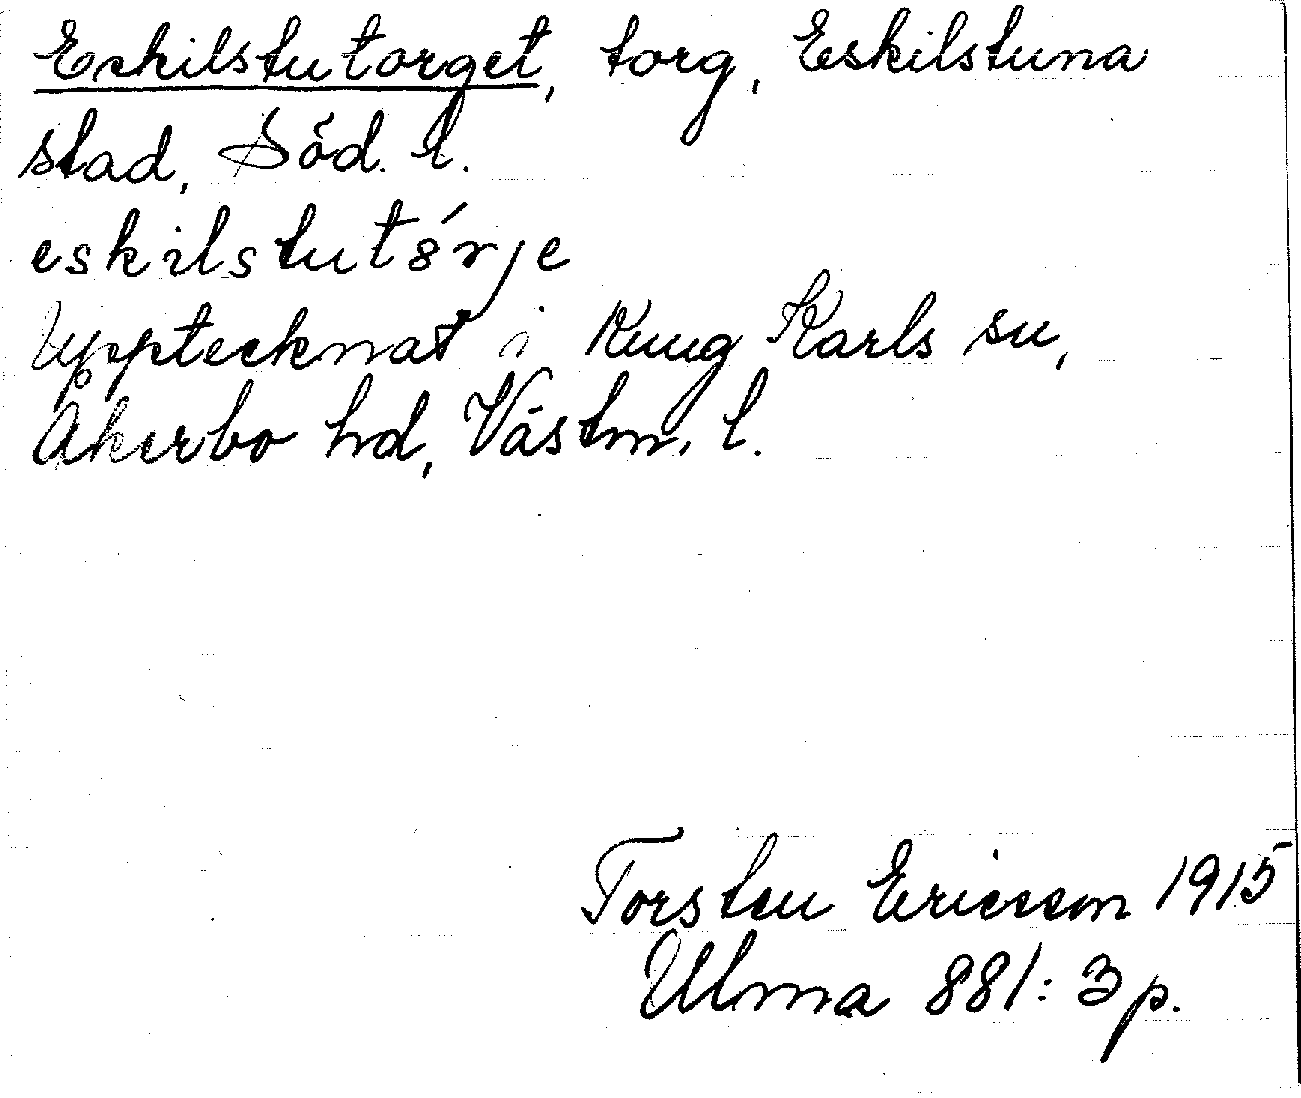 Eskilstutorget, torg, Eskilstuna
stad, Söd. l.
eskilstutórje
Upptecknat i Kung Karls sn,
Åkerbo hd, Västm. l.
Torsten Ericsson 1915
Ulma 881:3 p.